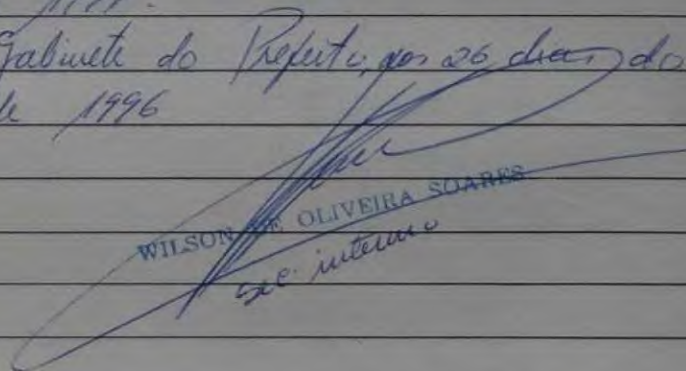 Gabinete do Prefeito, aos 26 dias do
de 1996
WILSON DE OLIVEIRA SOARES
sec. interino